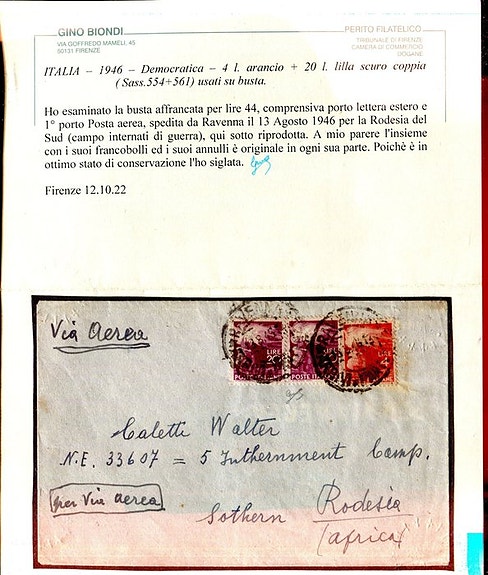 GINO BIONDI
VIA GOFFREDO MAMELI, 45
50131 FIRENZE
PERITO FILATELICO
TRIBUNALE DI FIRENZE
CAMERA DI COMMERCIO
DOGANE
ITALIA – 1946 – Democratica – 4 l. arancio + 20 l. lilla scuro coppia
(Sass.554+561) usati su busta.
Ho esaminato la busta affrancata per lire 44, comprensiva porto lettera estero e
1° porto Posta aerea, spedita da Ravenna il 13 Agosto 1946 per la Rodesia del
Sud (campo internati di guerra), qui sotto riprodotta. A mio parere l'insieme
con i suoi francobolli ed i suoi annulli è originale in ogni sua parte. Poichè è in
ottimo stato di conservazione l'ho siglata.
Firenze 12.10.22
Via Aerea
LIRE
20
LIRE
4
Caletti Walter
N.E. 33607 = 5 Inthernment Camp.
per Via aerea
Sothern Rodesia
(africa)